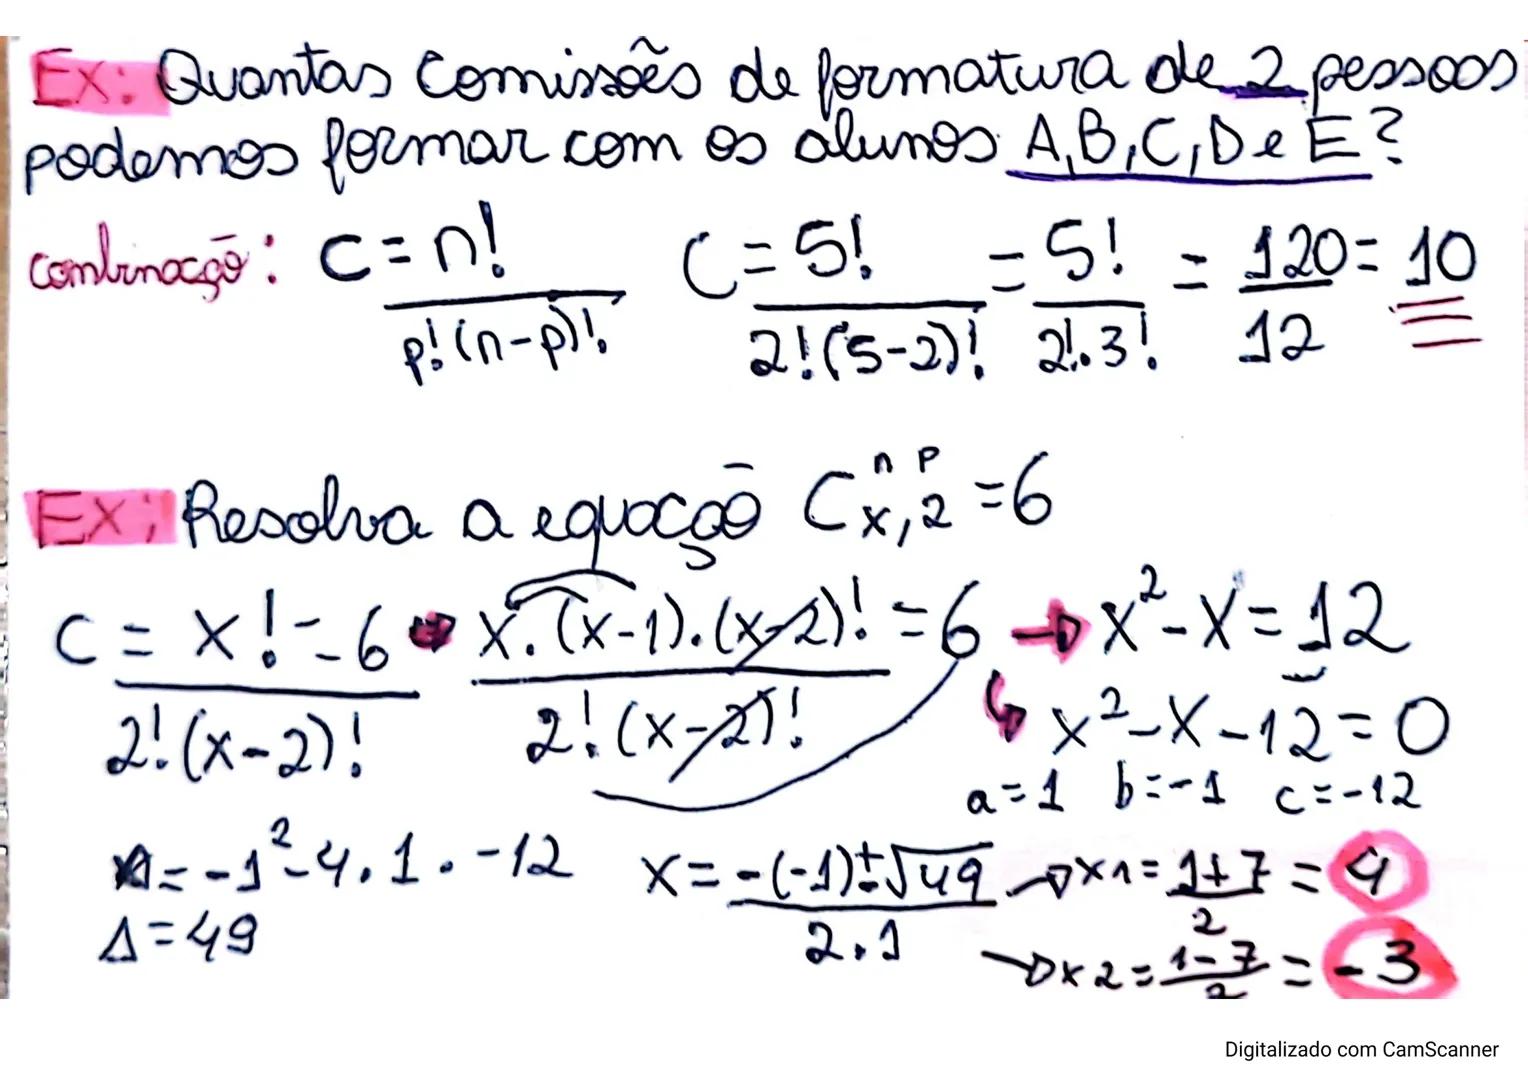 Ex: Quantas comissões de formatura de 2 pessoas
podemos formar com os alunos A, B, C, D e E?
combinação: C = n! / p!(n-p)!  C = 5! / 2!(5-2)! = 5! / 2!.3! = 120 / 12 = 10
Ex: Resolva a equação C x,2 = 6
n p
C = x! / 2!(x-2)! = 6 → x.(x-1).(x-2)! / 2!(x-2)! = 6 → x² - x = 12
↳ x² - x - 12 = 0
a = 1 b = -1 c = -12
Δ = -1² - 4 . 1 . -12  x = -(-1) ± √49 / 2.1 → x1 = 1+7 / 2 = 4
Δ = 49  → x2 = 1-7 / 2 = -3
Digitalizado com CamScanner